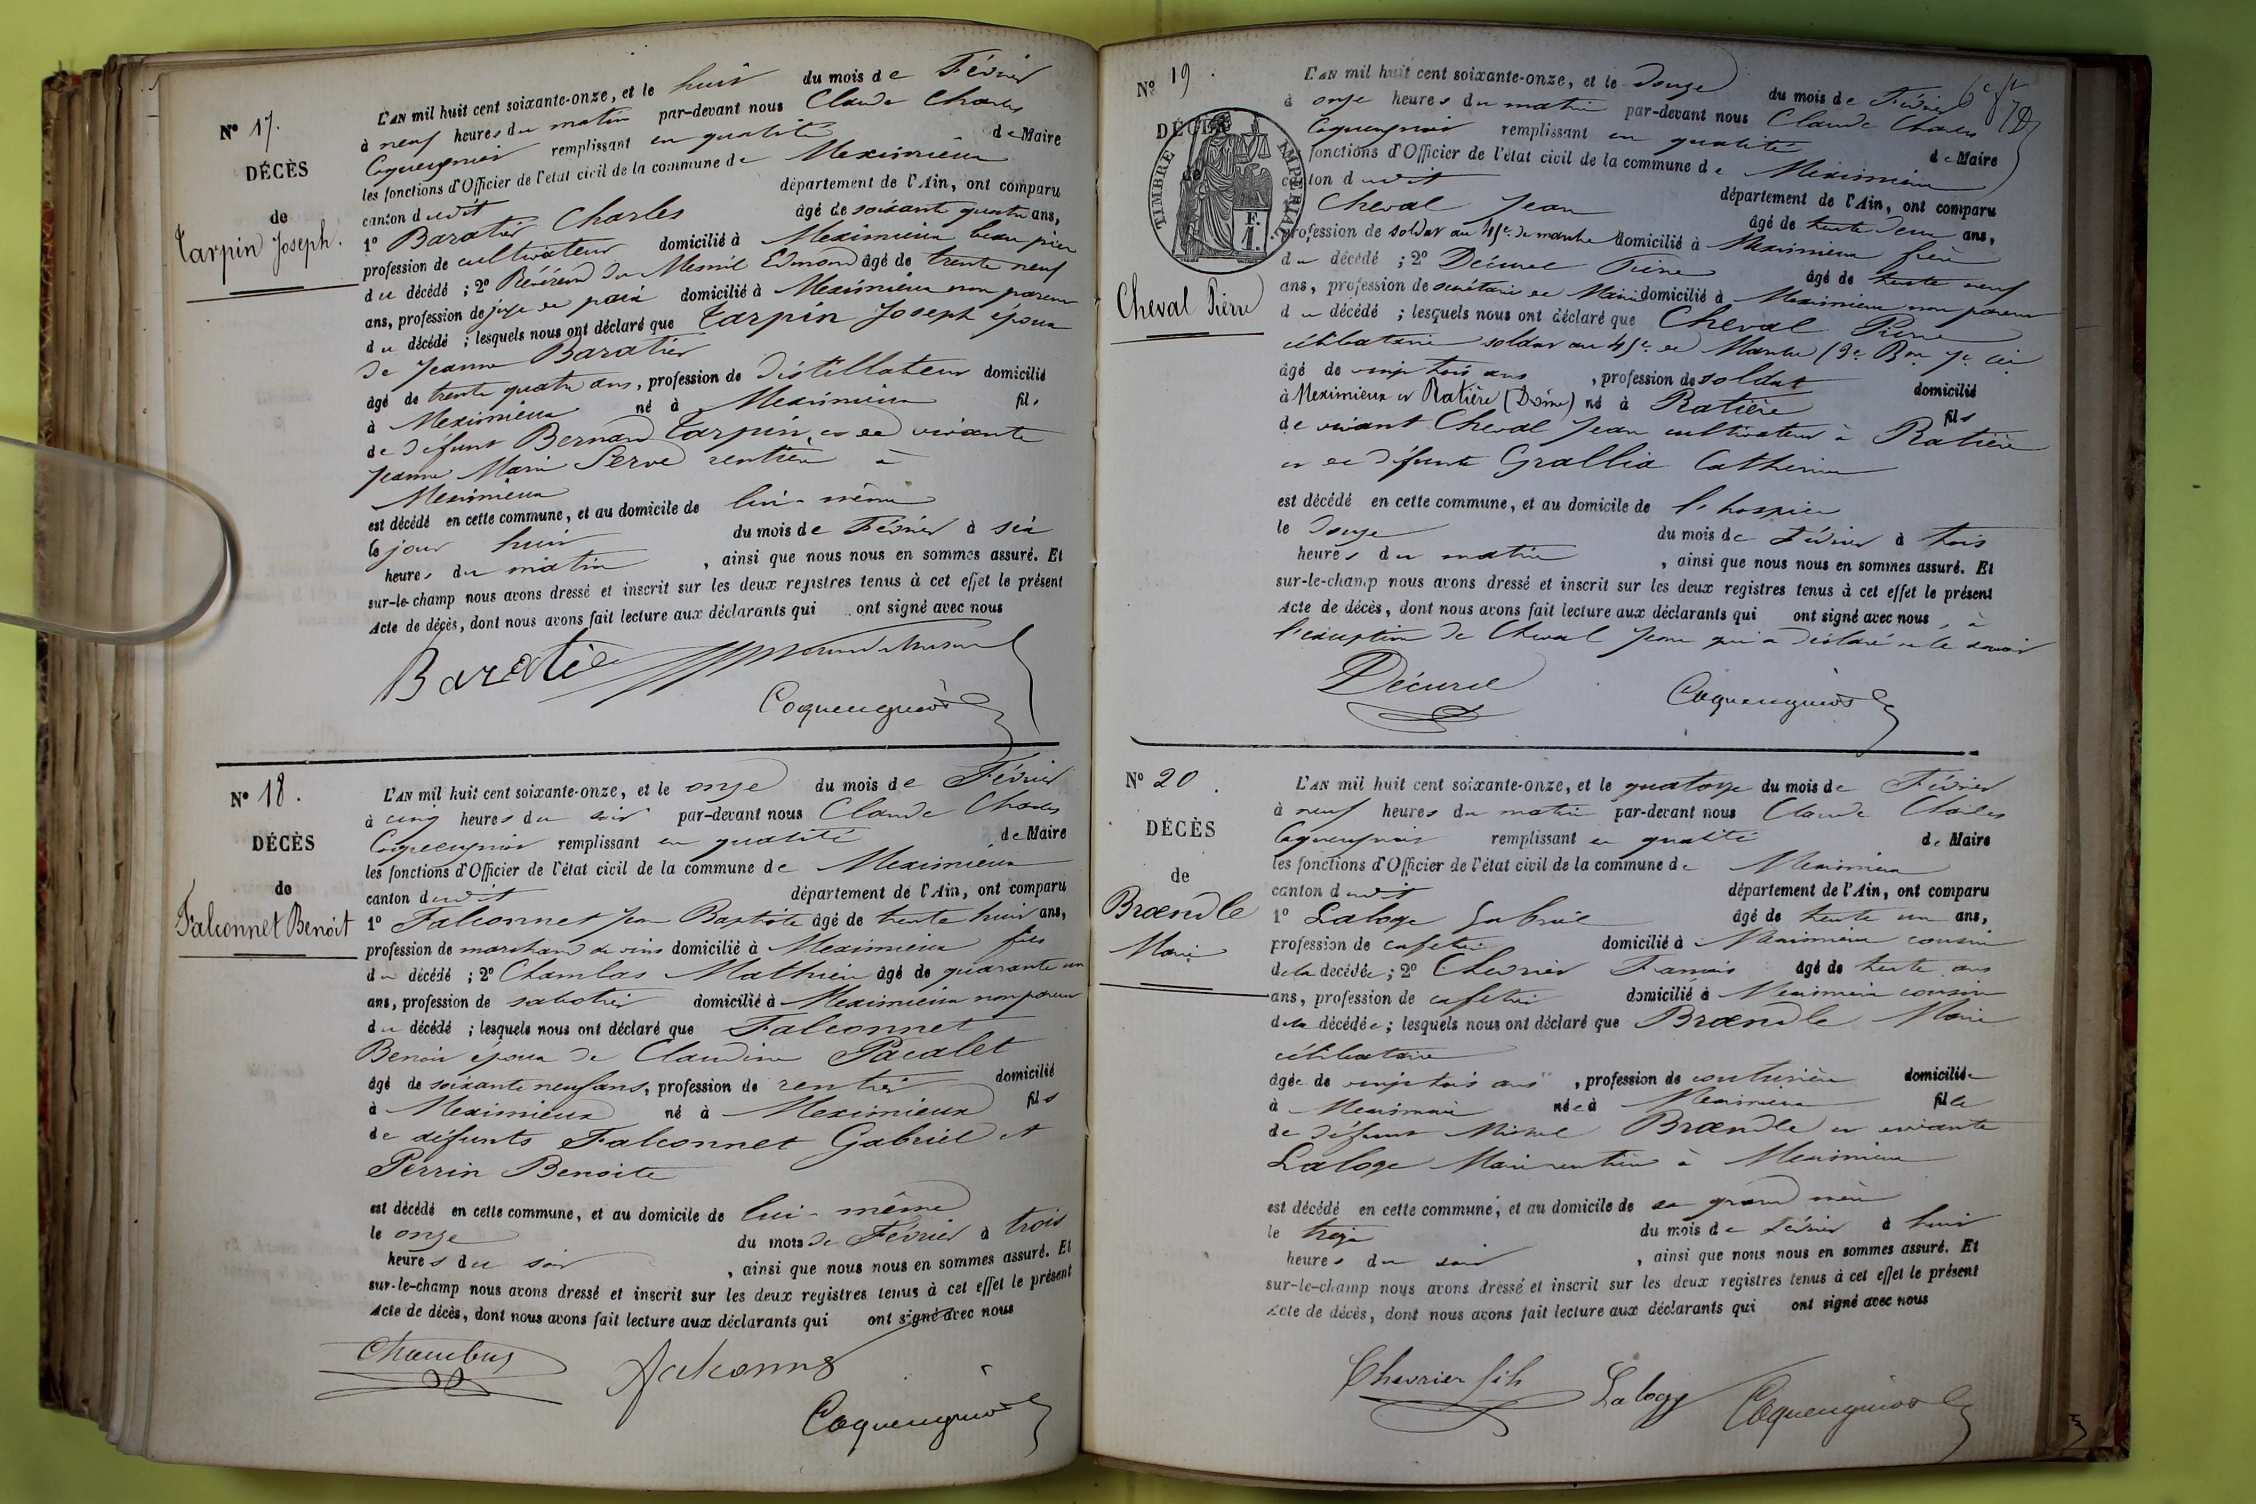 N° 17.
DÉCÈS
de
Tarpin Joseph.
L'AN mil huit cent soixante-onze, et le huit du mois de Février
à neuf heures du matin par-devant nous Claude Charles
Coquengniot remplissant en qualité de Maire
les fonctions d'Officier de l'état civil de la commune de Meximieux
canton dudit département de l'Ain, ont comparu
1° Baratier Charles âgé de soixante quatre ans,
profession de cultivateur domicilié à Meximieux beau père
du décédé ; 2° Révérend du Mesnil Edmond âgé de trente neuf
ans, profession de juge de paix domicilié à Meximieux non parent
du décédé ; lesquels nous ont déclaré que Tarpin Joseph époux
de Jeanne Baratier
âgé de trente quatre ans, profession de distillateur domicilié
à Meximieux né à Meximieux fils
de défunt Bernard Tarpin, et de vivante
Jeanne Marie Serve rentière à
Meximieux
est décédé en cette commune, et au domicile de lui-même
le jour huit du mois de Février à six
heures du matin , ainsi que nous nous en sommes assuré. Et
sur-le-champ nous avons dressé et inscrit sur les deux registres tenus à cet effet le présent
Acte de décès, dont nous avons fait lecture aux déclarants qui ont signé avec nous
Baratier
Coquengniot
N° 18.
DÉCÈS
de
Falconnet Benoit
L'AN mil huit cent soixante-onze, et le onze du mois de Février
à cinq heures du soir par-devant nous Claude Charles
Coquengniot remplissant en qualité de Maire
les fonctions d'Officier de l'état civil de la commune de Meximieux
canton dudit département de l'Ain, ont comparu
1° Falconnet Jean Baptiste âgé de trente huit ans,
profession de marchand de vins domicilié à Meximieux fils
du décédé ; 2° Chamblas Mathieu âgé de quarante un
ans, profession de sabotier domicilié à Meximieux non parent
du décédé ; lesquels nous ont déclaré que Falconnet
Benoit époux de Claudine Pacalet
âgé de soixante neuf ans, profession de rentier domicilié
à Meximieux né à Meximieux fils
de défunts Falconnet Gabriel et
Perrin Benoite
est décédé en cette commune, et au domicile de lui-même
le onze du mois de Février à trois
heures du soir , ainsi que nous nous en sommes assuré. Et
sur-le-champ nous avons dressé et inscrit sur les deux registres tenus à cet effet le présent
Acte de décès, dont nous avons fait lecture aux déclarants qui ont signé avec nous
Falconnet
Coquengniot
N° 19.
DÉCÈS
TIMBRE IMPERIAL
Cheval Pierre
L'AN mil huit cent soixante-onze, et le douze du mois de Février
à onze heures du matin par-devant nous Claude Charles
Coquengniot remplissant en qualité de Maire
fonctions d'Officier de l'état civil de la commune de Meximieux
canton dudit département de l'Ain, ont comparu
Cheval Jean âgé de trente deux ans,
profession de soldat au 45e de marche domicilié à Meximieux frère
du décédé ; 2° Décurel Pierre âgé de trente neuf
ans, profession de secrétaire de Mairie domicilié à Meximieux non parent
du décédé ; lesquels nous ont déclaré que Cheval Pierre
célibataire soldat au 45e de Marche (3e Bon 7e Cie
âgé de vingt trois ans , profession de soldat domicilié
à Meximieux et Ratière (Drôme) né à Ratière fils
de vivant Cheval Jean cultivateur à Ratière
et de défunte Grallia Catherine
est décédé en cette commune, et au domicile de l'hospice
le douze du mois de Février à trois
heures du matin , ainsi que nous nous en sommes assuré. Et
sur-le-champ nous avons dressé et inscrit sur les deux registres tenus à cet effet le présent
Acte de décès, dont nous avons fait lecture aux déclarants qui ont signé avec nous, à
l'exception de Cheval Jean qui a déclaré ne le savoir
Décurel
Coquengniot
N° 20.
DÉCÈS
de
Brændle
Marie
L'AN mil huit cent soixante-onze, et le quatorze du mois de Février
à neuf heures du matin par-devant nous Claude Charles
Coquengniot remplissant en qualité de Maire
les fonctions d'Officier de l'état civil de la commune de Meximieux
canton dudit département de l'Ain, ont comparu
1° Laloge Gabriel âgé de trente un ans,
profession de cafetier domicilié à Meximieux cousin
de la décédée ; 2° Chevrier François âgé de trente ans
ans, profession de cafetier domicilié à Meximieux cousin
de la décédée ; lesquels nous ont déclaré que Brændle Marie
célibataire
âgée de vingt trois ans , profession de couturière domiciliée
à Meximieux née à Meximieux fille
de défunt Michel Brændle et vivante
Laloge Marie rentière à Meximieux
est décédé en cette commune, et au domicile de sa grand mère
le treize du mois de Février à huit
heures du soir , ainsi que nous nous en sommes assuré. Et
sur-le-champ nous avons dressé et inscrit sur les deux registres tenus à cet effet le présent
Acte de décès, dont nous avons fait lecture aux déclarants qui ont signé avec nous
Chevrier fils Laloge Coquengniot